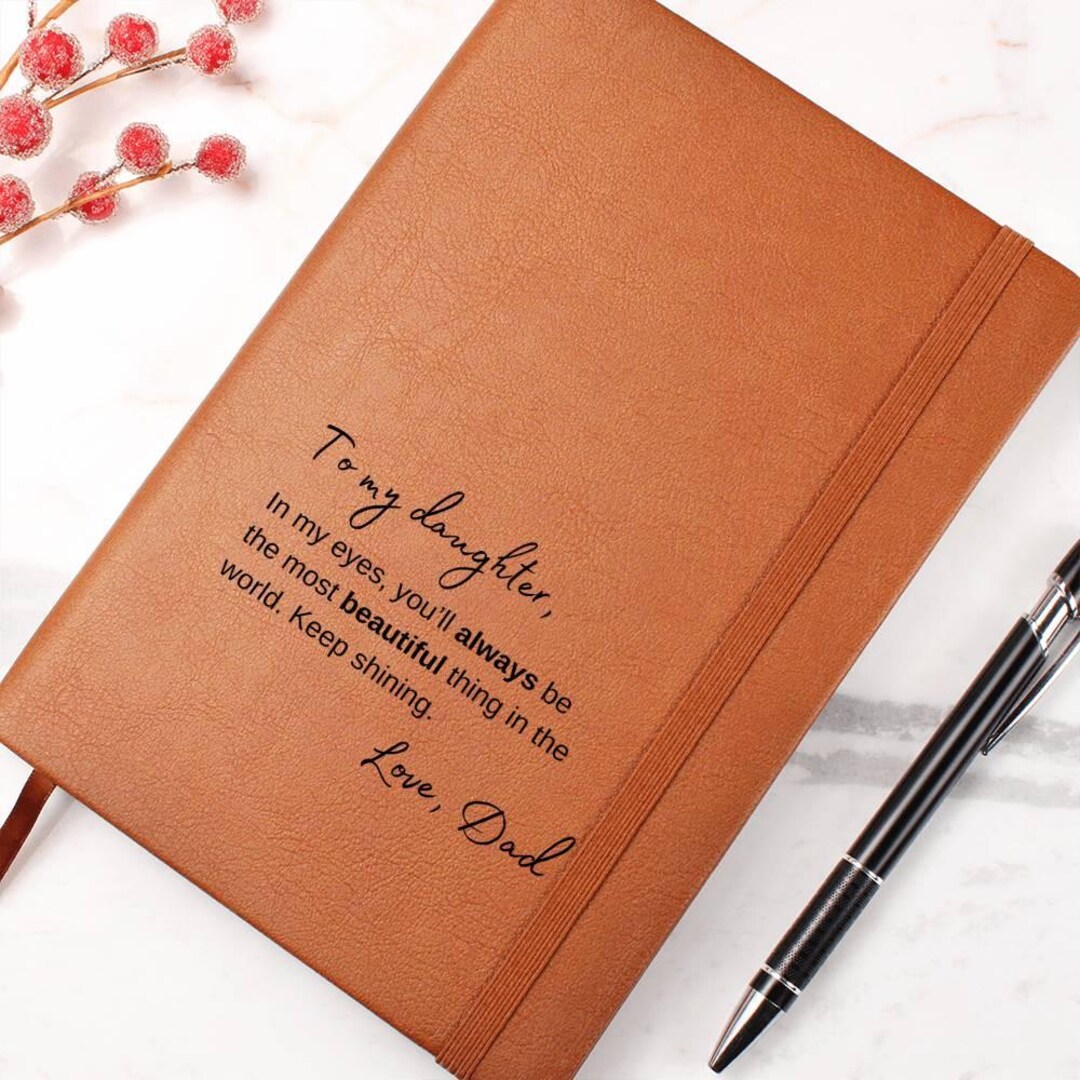 To my daughter,
In my eyes, you'll always be
the most beautiful thing in the
world. Keep shining.
Love, Dad